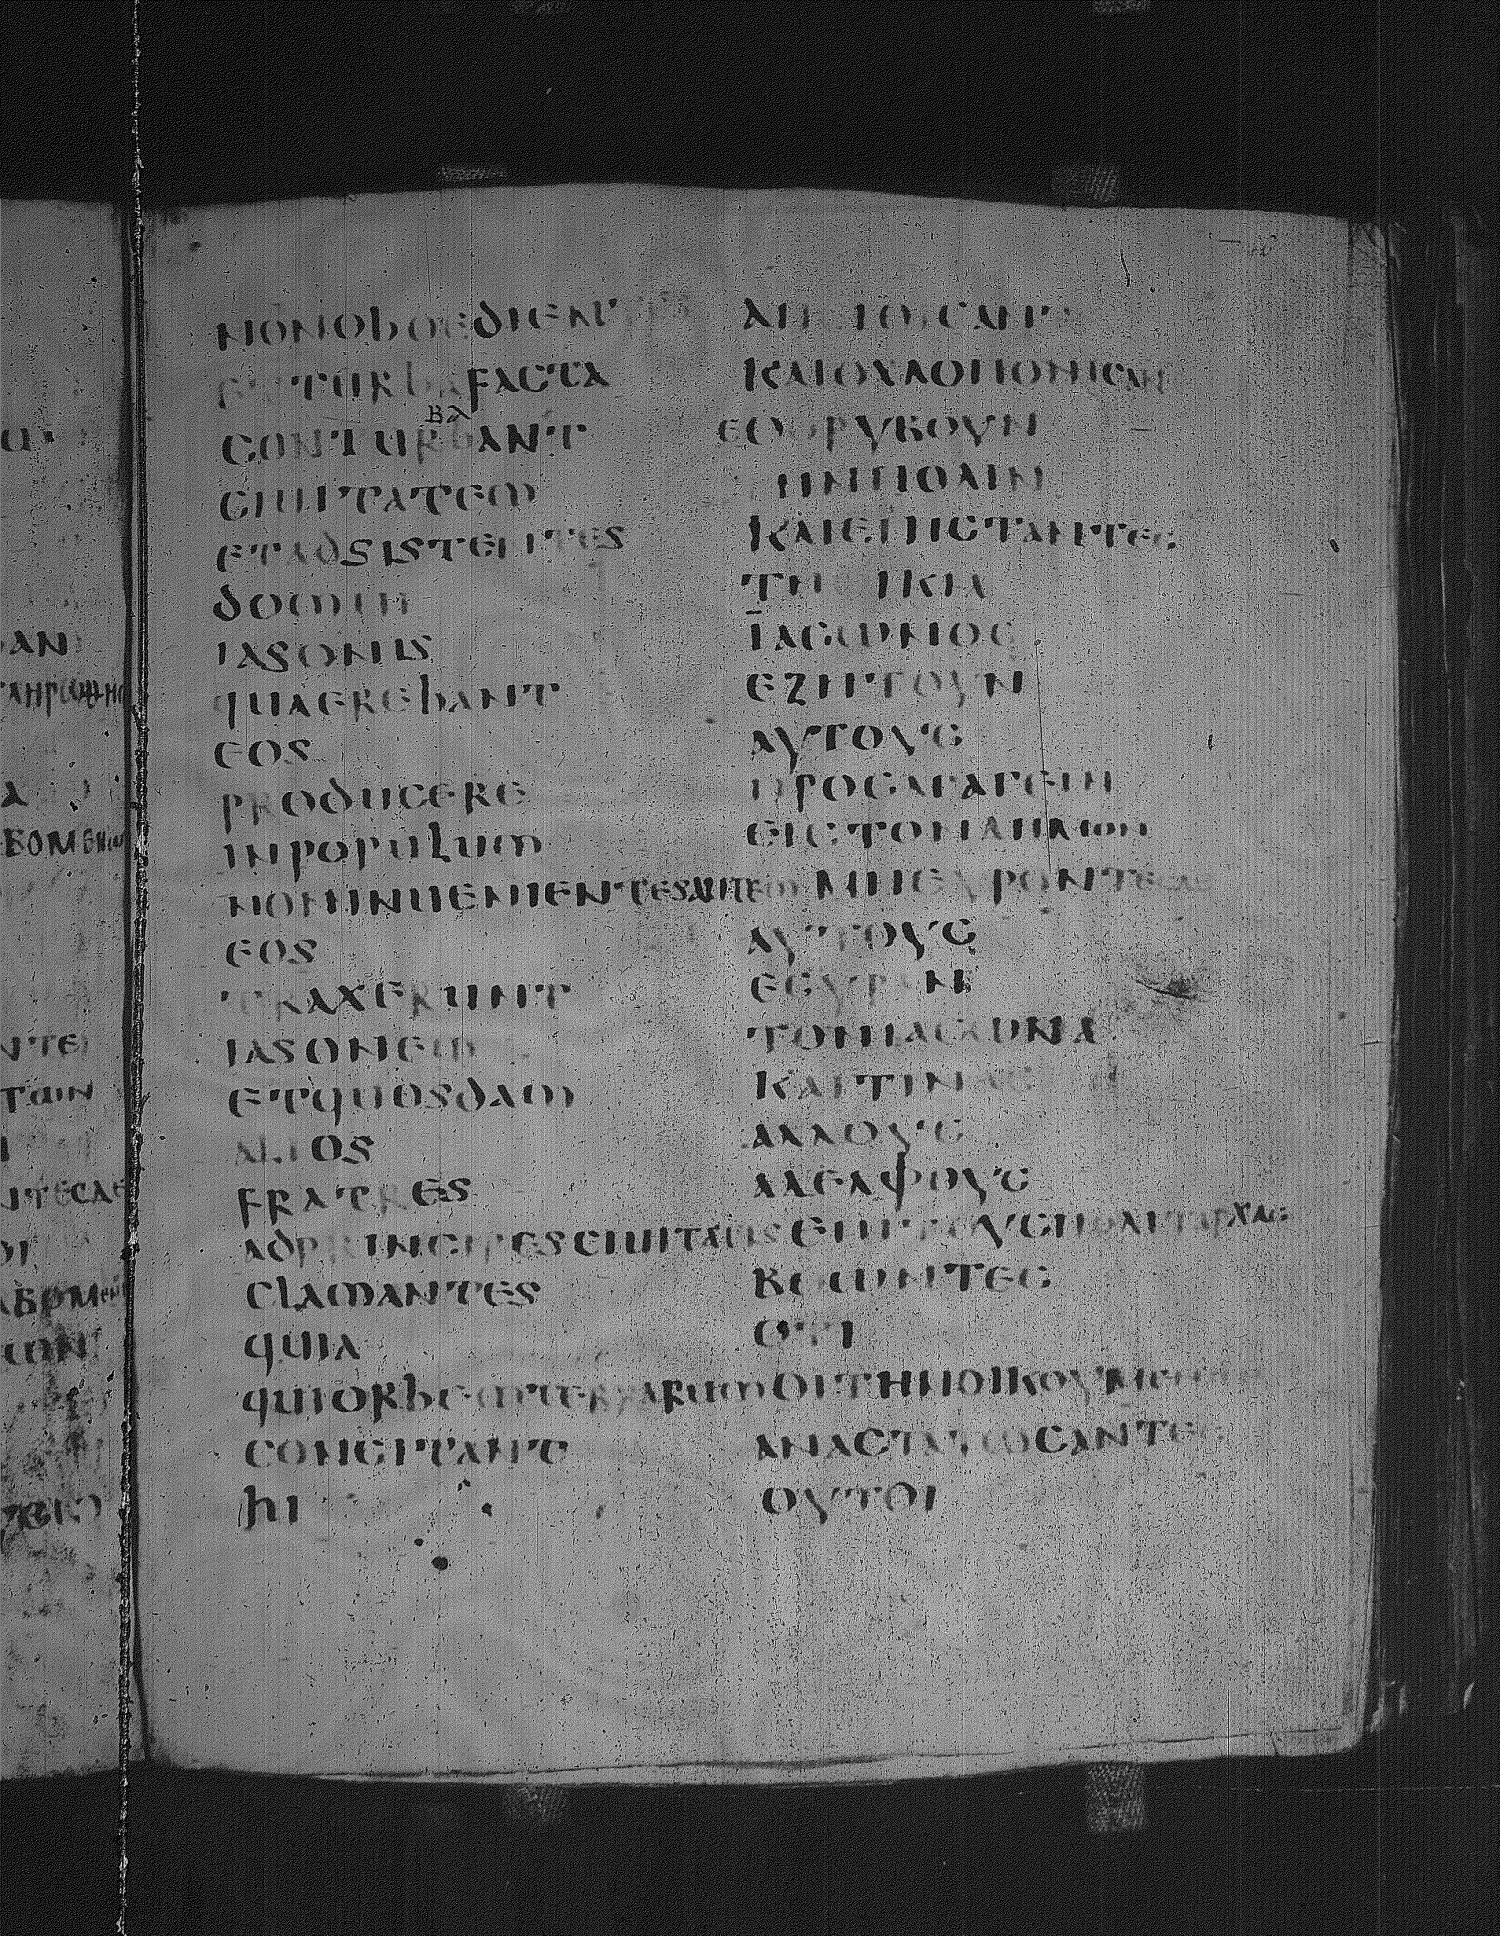 NONOBOEDIENT
ETTURBAFACTA
BA
CONTURBANT
CIUITATEM
ETADSISTENTES
DOMUI
IASONIS
QUAEREBANT
EOS
PRODUCERE
INPOPULUM
NONINUENIENTESAUTEM
EOS
TRAXERUNT
IASONEM
ETQUOSDAM
ALIOS
FRATRES
ADPRINCIPESCIUITATIS
CLAMANTES
QUIA
QUIORBEMTERRARUM
CONCITANT
HI
ΚΑΙΟΧΛΟΠΟΙΗCΑΝ
ΕΘΟΡΥΒΟΥΝ
ΤΗΝΠΟΛΙΝ
ΚΑΙΕΠΙCΤΑΝΤΕC
ΤΗΟΙΚΙΑ
ΪΑCΩΝΟC
ΕΖΗΤΟΥΝ
ΑΥΤΟΥC
ΠΡΟCΑΓΑΓΕΙΝ
ΕΙCΤΟΝΔΗΜΟΝ
ΜΗΕΥΡΟΝΤΕCΔΕ
ΑΥΤΟΥC
ΕCΥΡΑΝ
ΤΟΝΙΑCΩΝΑ
ΚΑΙΤΙΝΑC
ΑΛΛΟΥC
ΑΔΕΛΦΟΥC
ΕΠΙΤΟΥCΠΟΛΙΤΑΡΧΑC
ΒΟΩΝΤΕC
ΟΤΙ
ΟΙΤΗΝΟΙΚΟΥΜΕΝΗΝ
ΑΝΑCΤΑΤΩCΑΝΤΕC
ΟΥΤΟΙ